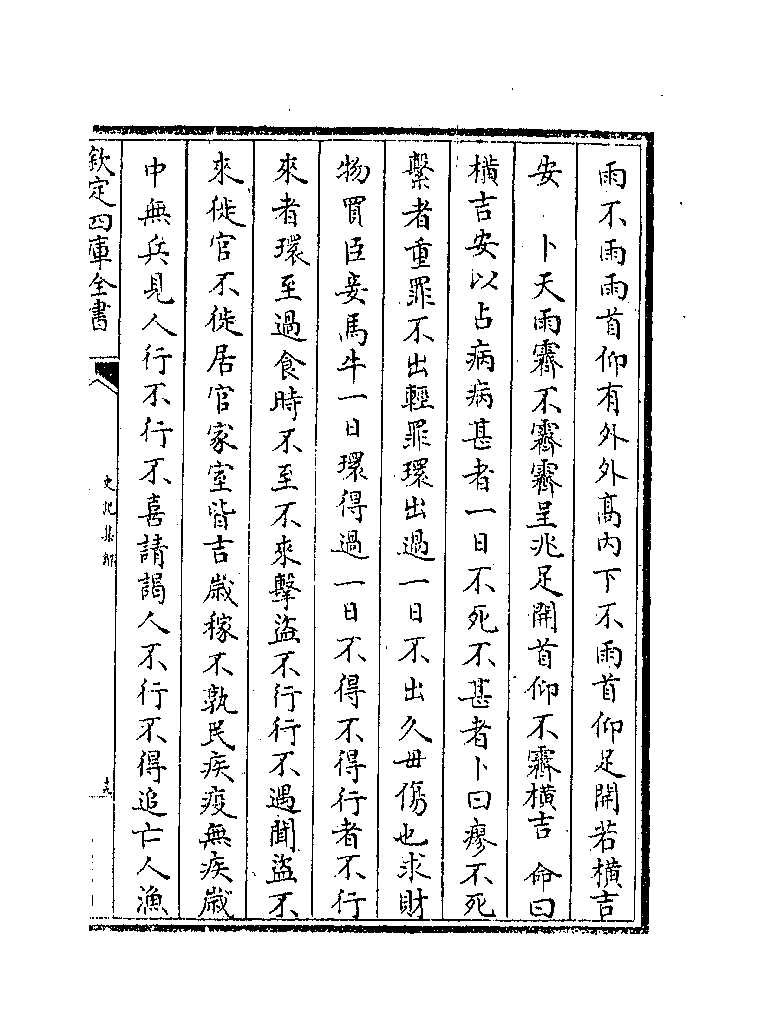 雨不雨雨首仰有外外髙内下不雨首仰足開若橫吉
安　卜天雨霽不霽霽呈兆足開首仰不霽橫吉　命曰
橫吉安以占病病甚者一日不死不甚者卜曰瘳不死
繫者重罪不出輕罪環出過一日不出久毋傷也求財
物買臣妾馬牛一日環得過一日不得不得行者不行
來者環至過食時不至不來擊盜不行行不遇聞盜不
來徙官不徙居官家室皆吉嵗稼不孰民疾疫無疾嵗
中無兵見人行不行不喜請謁人不行不得追亡人漁
欽定四庫全書
史記集解